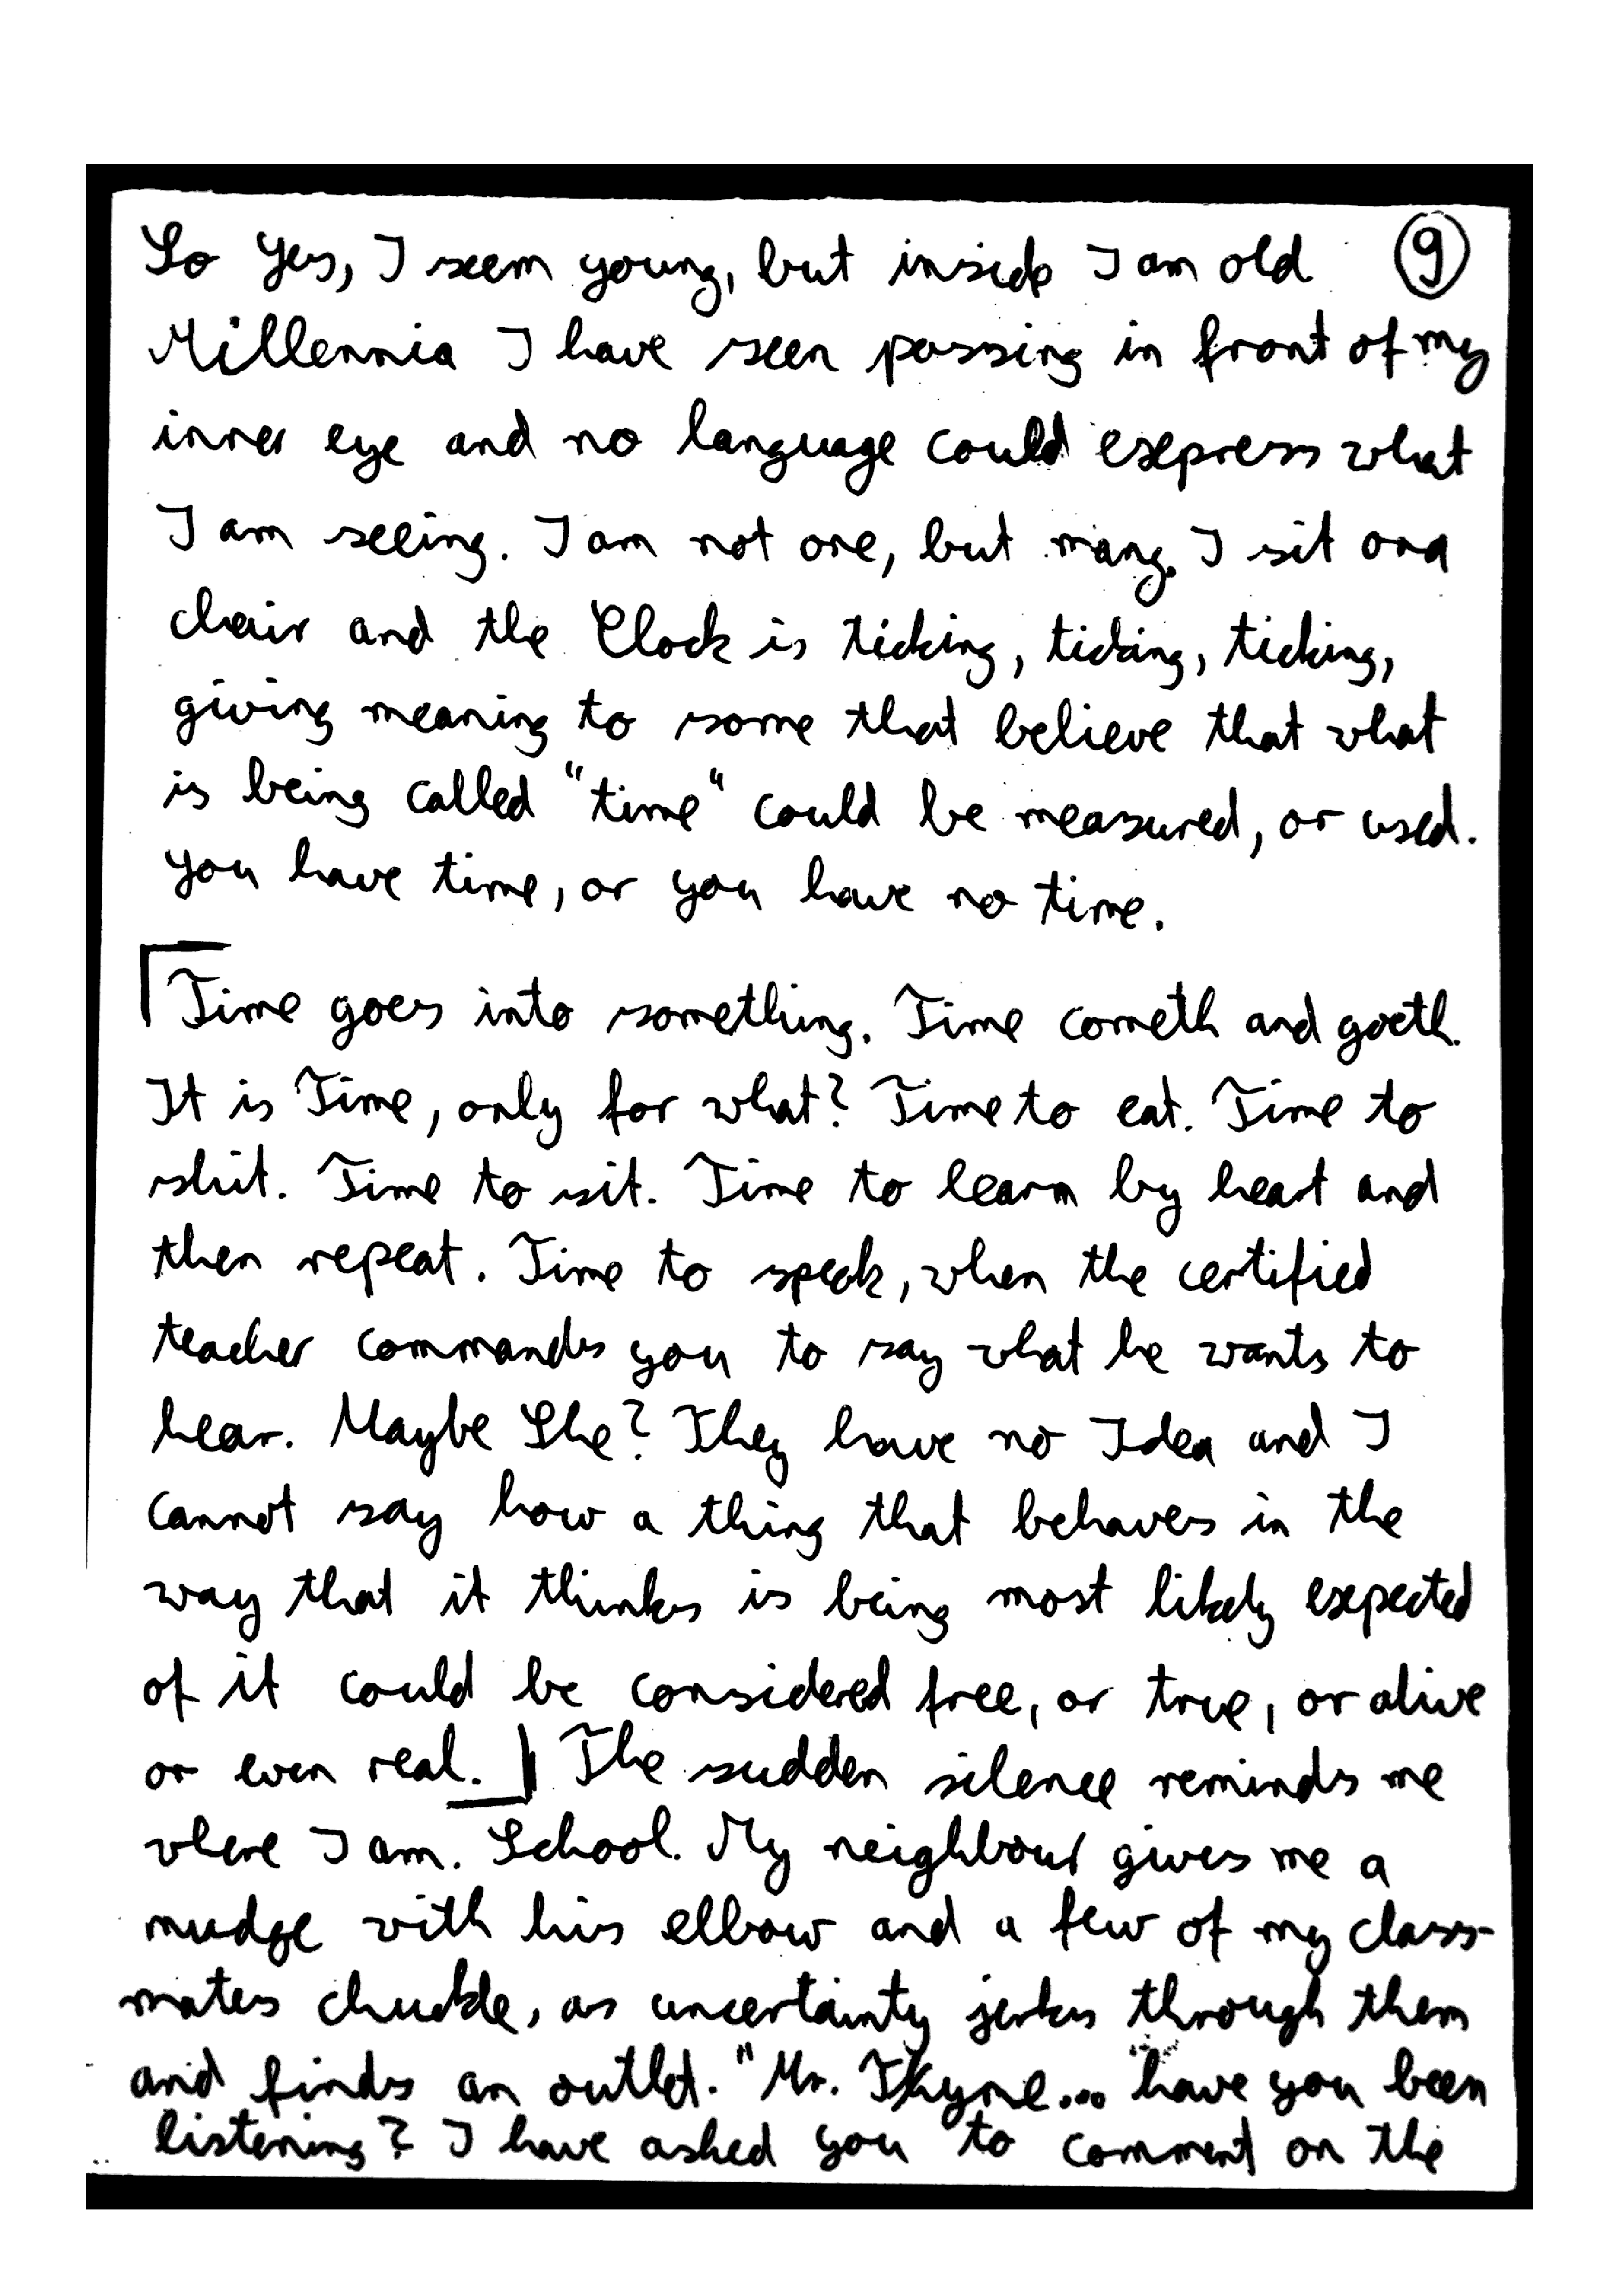 So Yes, I seem young, but inside I am old 9
Millennia I have seen passing in front of my
inner eye and no language could express what
I am seeing. I am not one, but many. I sit on a
chair and the Clock is ticking, ticking, ticking,
giving meaning to some that believe that what
is being called "time" could be measured, or used.
You have time, or you have no time.
⌈Time goes into something. Time cometh and goeth.
It is Time, only for what? Time to eat. Time to
shit. Time to sit. Time to learn by heart and
then repeat. Time to speak, when the certified
teacher commands you to say what he wants to
hear. Maybe She? They have no Idea and I
cannot say how a thing that behaves in the
way that it thinks is being most likely expected
of it could be considered free, or true, or alive
or even real.⌋ The sudden silence reminds me
where I am. School. My neighbour gives me a
nudge with his elbow and a few of my class-
mates chuckle, as uncertainty jerks through them
and finds an outlet. "Mr. Thyme... have you been
listening? I have asked you to comment on the